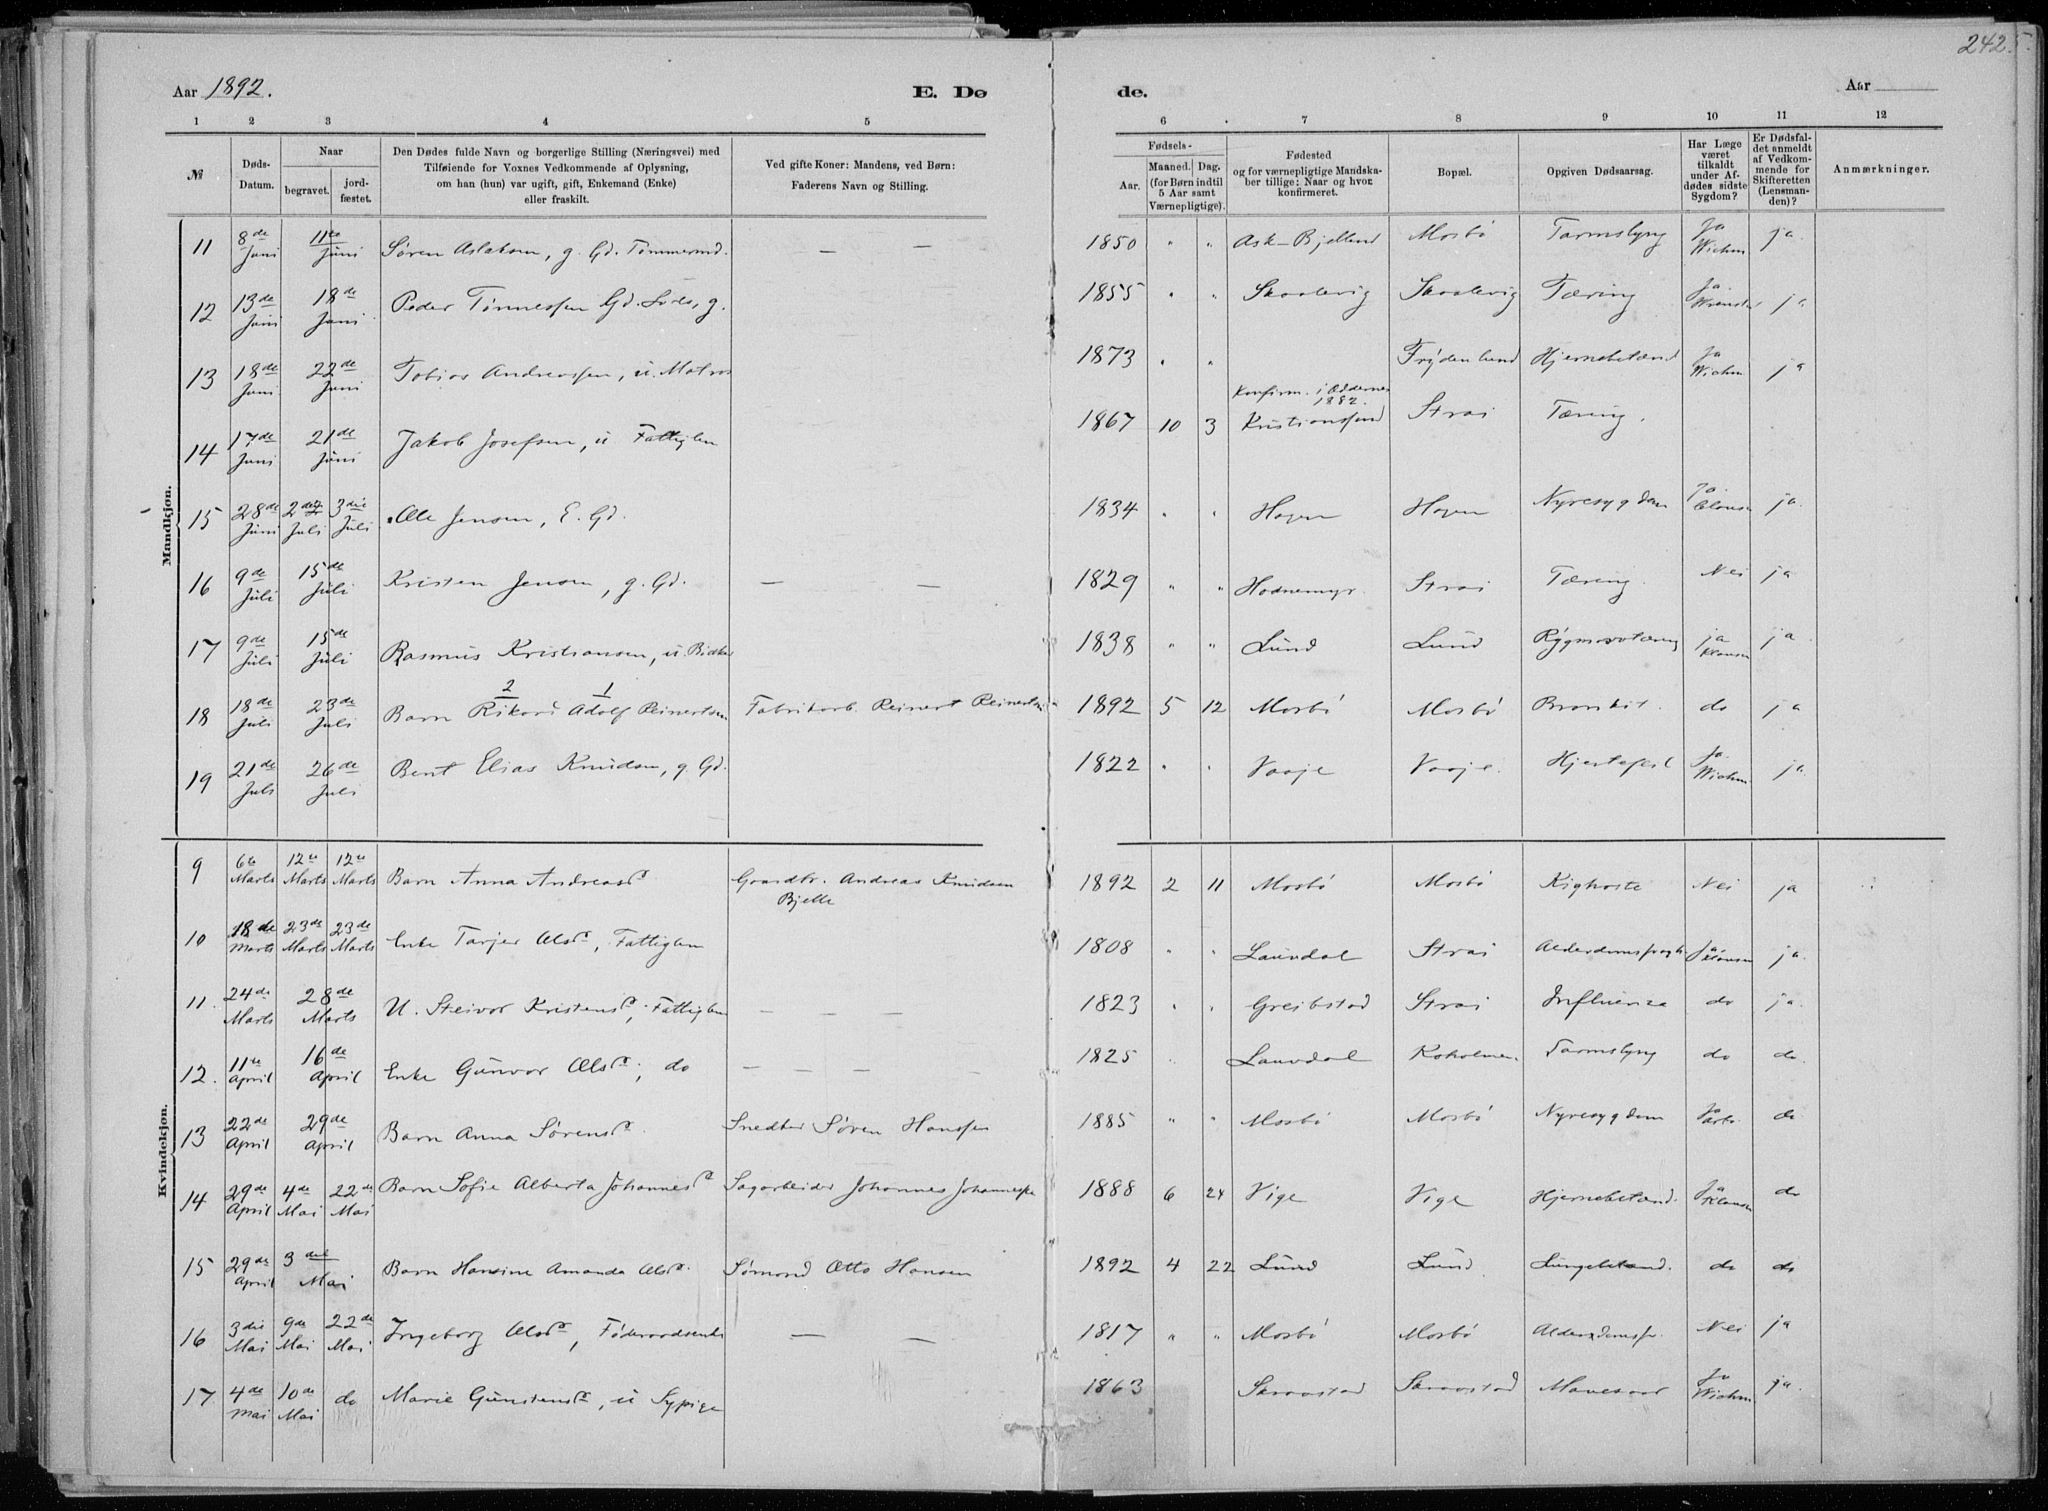 2425.
Aar 1892. E. Dø de. Aar
1 2 3 4 5 6 7 8 9 10 11 12
№ Døds-Datum. Naar begravet. jordfæstet. Den Dødes fulde Navn og borgerlige Stilling (Næringsvei) med Tilføiende for Voxnes Vedkommende af Oplysning, om han (hun) var ugift, gift, Enkemand (Enke) eller fraskilt. Ved gifte Koner: Mandens, ved Børn: Faderens Navn og Stilling. Fødsels- Aar. Maaned. Dag. (for Børn indtil 5 Aar samt Værnepligtige). Fødested og for værnepligtige Mandskaber tillige: Naar og hvor konfirmeret. Bopæl. Opgiven Dødsaarsag. Har Læge været tilkaldt under Afdødes sidste Sygdom? Er Dødsfaldet anmeldt af Vedkommende for Skifteretten (Lensmanden)? Anmærkninger.
Mandkjøn.
11 8de Juni 11te Juni Søren Aslaksen, g. Gd. Tømmermd. — — 1850 " " Ask-Bjelland Mosbö Tarmslyng Ja Wichm ja.
12 13de Juni 18de Juni Peder Tönnessen Gd. g. 1855 " " Skaalevig Skaalevig Tæring Ja ja
13 18de Juni 22de Juni Tobias Andreassen, u. Matros 1873 " " Frÿdenlund Hjernebetænd Ja Wichm ja
14 17de Juni 21de Juni Jakob Josefsen, u Fattiglem 1867 10 3 Konfirm. i Oddernes 1882. Kristianssand Strai Tæring.
15 28de Juni 2den Juli 3die Juli Ole Jensen, E. Gd. 1834 " " Hagen Hagen Nyresygdom Ja. Clausen ja.
16 9de Juli 15de Juli Kristen Jensen, g. Gd. — — 1829 " " Hodnemyr. Strai Tæring. Nei ja
17 9de Juli 15de Juli Rasmus Kristiansen, u. 1838 " " Lund Lund Rygmarvstæring ja Klausen ja
18 18de Juli 23de Juli Barn Rikard 2 Adolf 1 Reinertsen Fabrikarb. Reinert Reinertsen 1892 5 12 Mosbö Mosbö Bronkit. do ja
19 21de Juli 26de Juli Bent Elias Knudsen, g. Gd. 1822 " " Vaaje Vaaje. Hjertefeil Ja. Wichm ja.
Kvindekjøn.
9 6te Marts 12te Marts 12te Marts Barn Anna Andreasd. Gaardbr. Andreas Knudsen Bjelle 1892 2 11 Mosbö Mosbö Kighoste Nei ja
10 18de Marts 23de Marts 23de Marts Enke Tarjer Olsd, Fattiglem 1808 " " Lauvdal Strai Ja Klausen ja.
11. 24de Marts 28de Marts U. Steivor Kristensd, Fattiglem — — — 1823 " " Greibstad Strai Influenza do ja.
12. 11te April 16de April Enke Gunvor Olsd, do — — — — 1825 " Lauvdal Koholmen. Tarmslyng do do.
13 22de April 29de April Barn Anna Sörensd. Snedker Sören Hanssen 1885 " " Mosbö Mosbö Nyresygdom Ja do
14 29de April 4de Mai 22de Mai Barn Sofie Alberta Johannesd Sagarbeider Johannes Johannessen 1888 6 24 Vige Vige Hjernebetænd. Ja Klausen do
15 29de April 3die Mai Barn Hansine Amanda Olsd. Sömand Otto Hansen 1892 4 22 Lund Lund Lungebetænd. do do
16 3die Mai 9de Mai 22de Mai Ingeborg Olsd, Föderaadsenke — — 1817 " " Mosbö Mosbö Alderdomssv. Nei ja
17 4de Mai 10de Mai do Marie Gunstensd, u Sypige 1863 Skraastad Skraastad Mavesaar Ja Wichm ja.